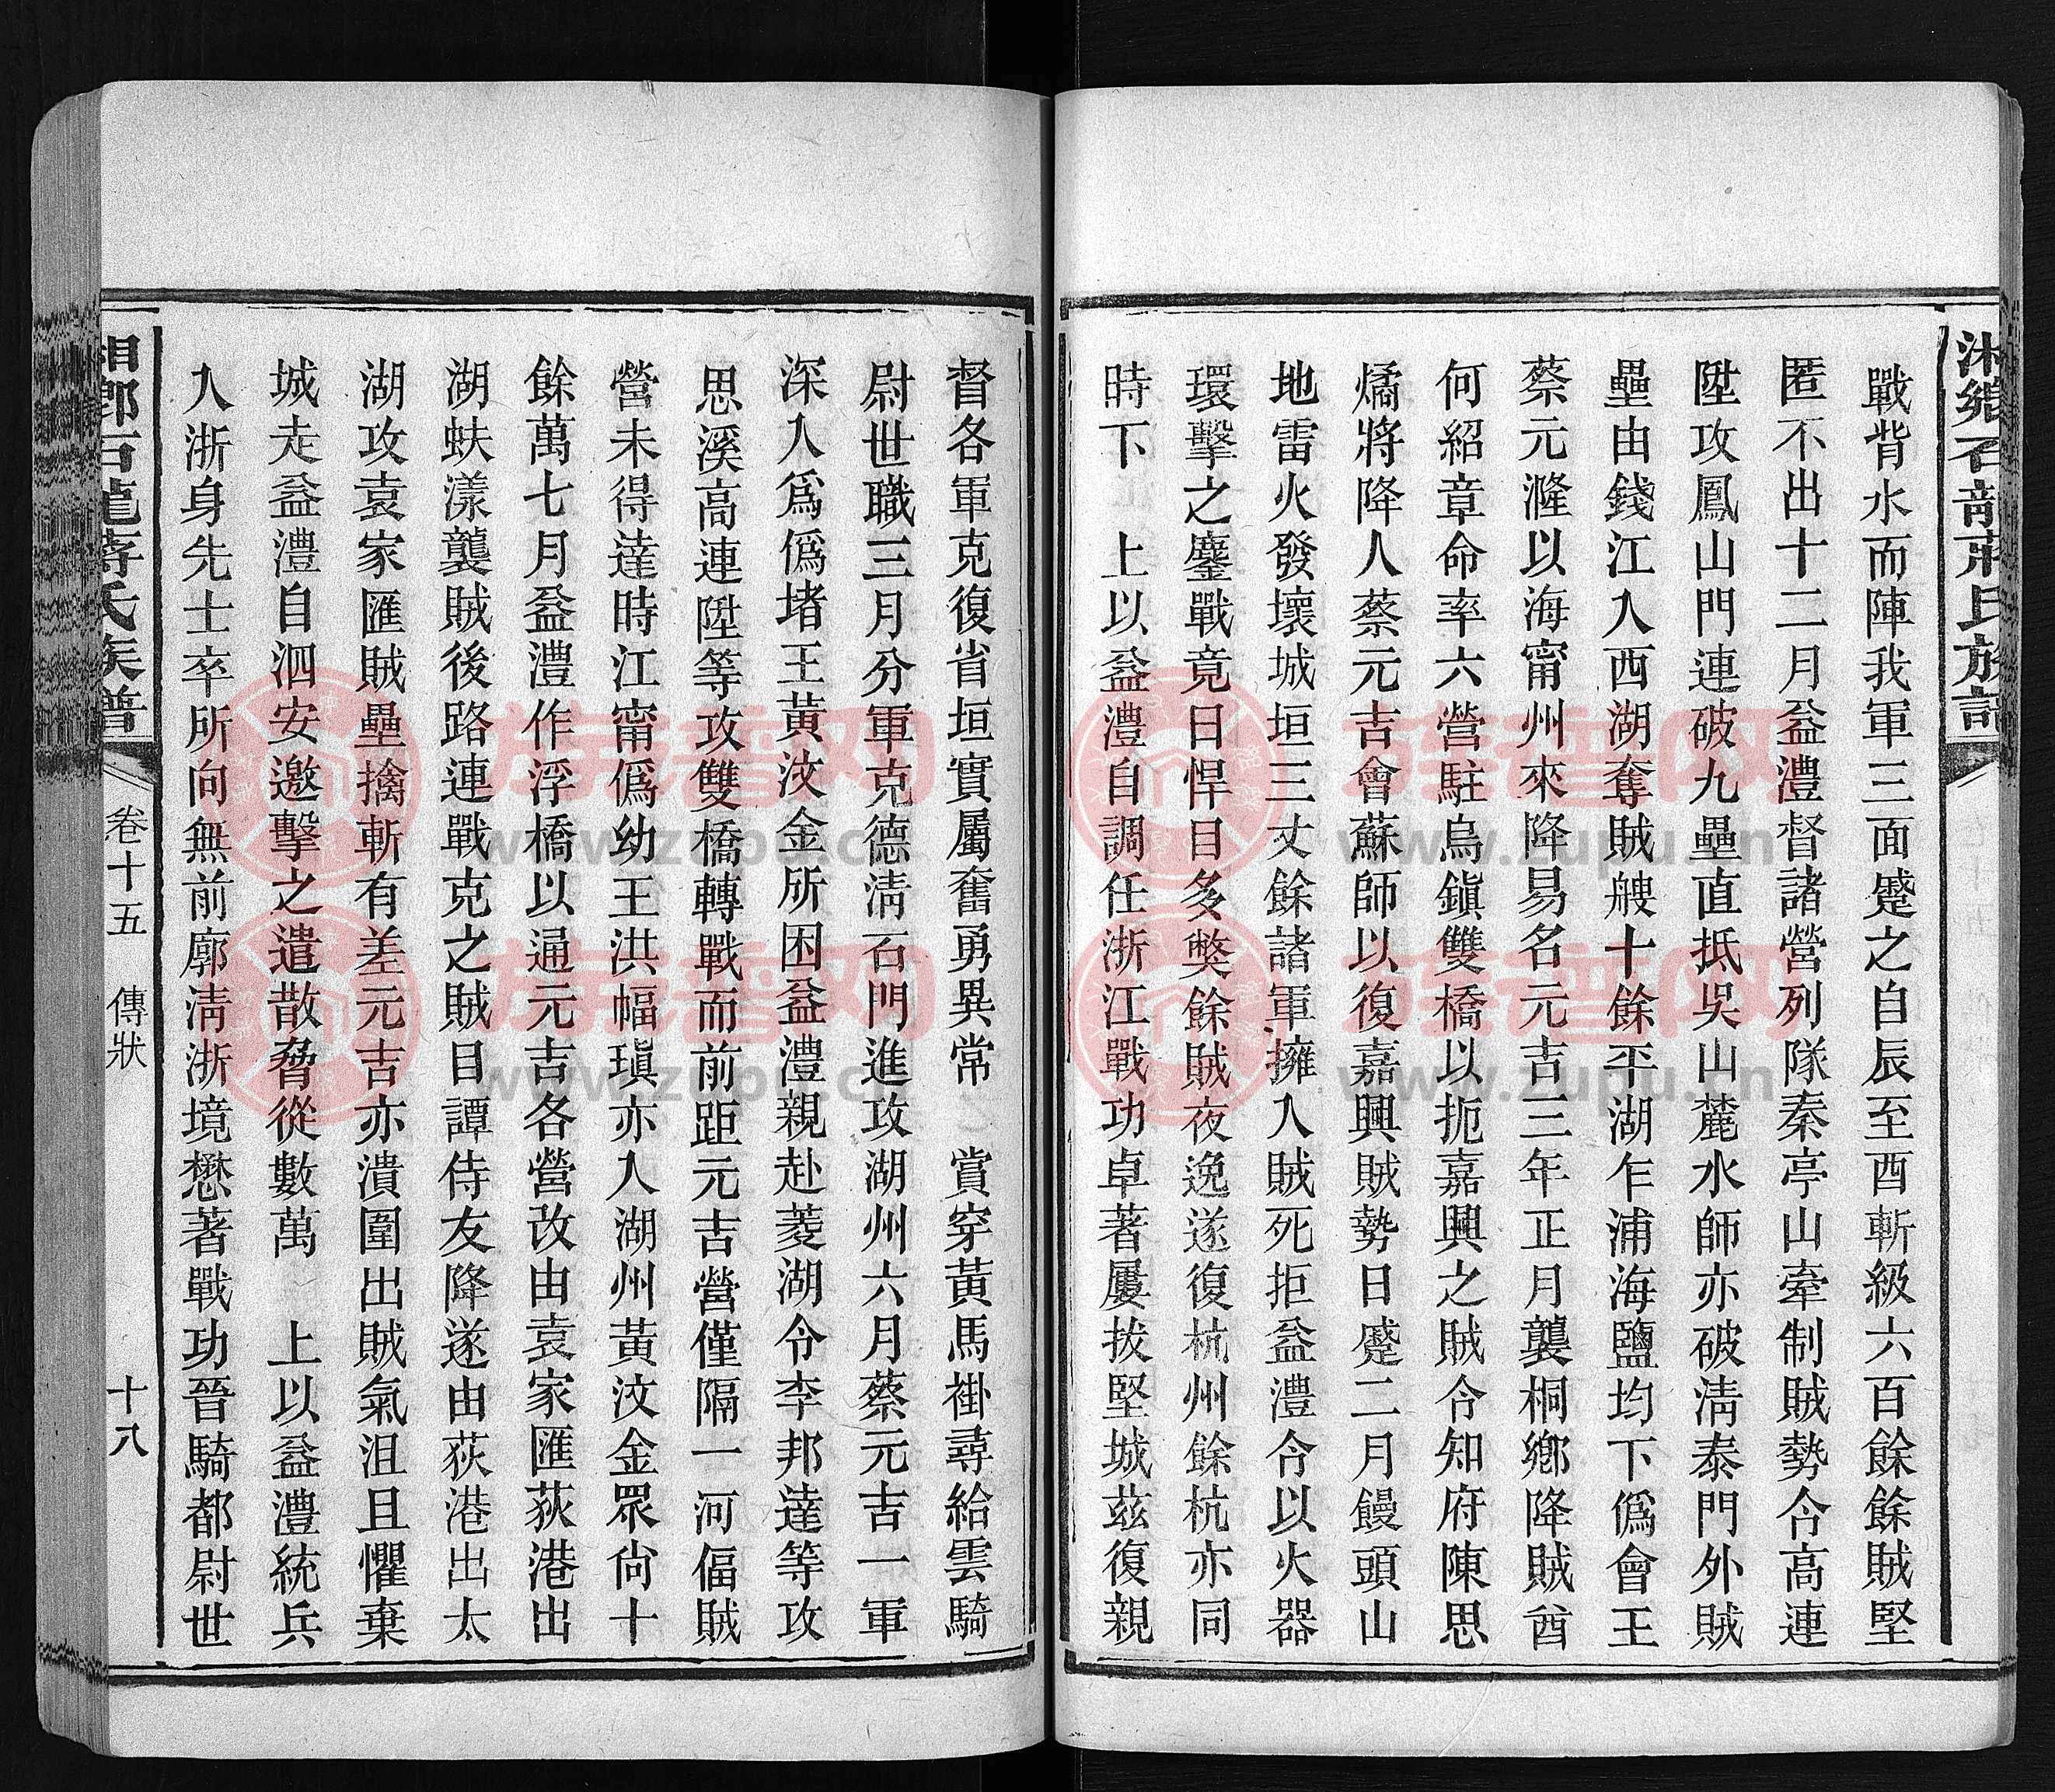 湘鄉石龍蔣氏族譜
戰背水而陣我軍三面蹙之自辰至酉斬級六百餘餘賊堅
匿不出十二月益澧督諸營列隊秦亭山牽制賊勢令高連
陞攻鳳山門連破九壘直抵吳山麓水師亦破淸泰門外賊
壘由錢江入西湖奪賊艘十餘平湖乍浦海鹽均下僞會王
蔡元漋以海甯州來降易名元吉三年正月襲桐鄉降賊酋
何紹章命率六營駐烏鎭雙橋以扼嘉興之賊令知府陳思
燏將降人蔡元吉會蘇師以復嘉興賊勢日蹙二月饅頭山
地雷火發壞城垣三丈餘諸軍擁入賊死拒益澧令以火器
環擊之鏖戰竟日悍目多斃餘賊夜逸遂復杭州餘杭亦同
時下　上以益澧自調任浙江戰功卓著屢拔堅城茲復親
督各軍克復省垣實屬奮勇異常　賞穿黃馬褂尋給雲騎
尉世職三月分軍克德淸石門進攻湖州六月蔡元吉一軍
深入爲僞堵王黃汶金所困益澧親赴菱湖令李邦達等攻
思溪高連陞等攻雙橋轉戰而前距元吉營僅隔一河偪賊
營未得達時江甯僞幼王洪幅瑱亦入湖州黃汶金眾尙十
餘萬七月益澧作浮橋以通元吉各營改由袁家匯荻港出
湖蚨漾襲賊後路連戰克之賊目譚侍友降遂由荻港出太
湖攻袁家匯賊壘擒斬有差元吉亦潰圍出賊氣沮且懼棄
城走益澧自泗安邀擊之遣散脅從數萬　上以益澧統兵
入浙身先士卒所向無前廓淸浙境懋著戰功晉騎都尉世
湘鄉石龍蔣氏族譜
卷十五　傳狀
十八
族譜网
www.zupu.cn
族譜网
www.zupu.cn
族譜网
www.zupu.cn
族譜网
www.zupu.cn